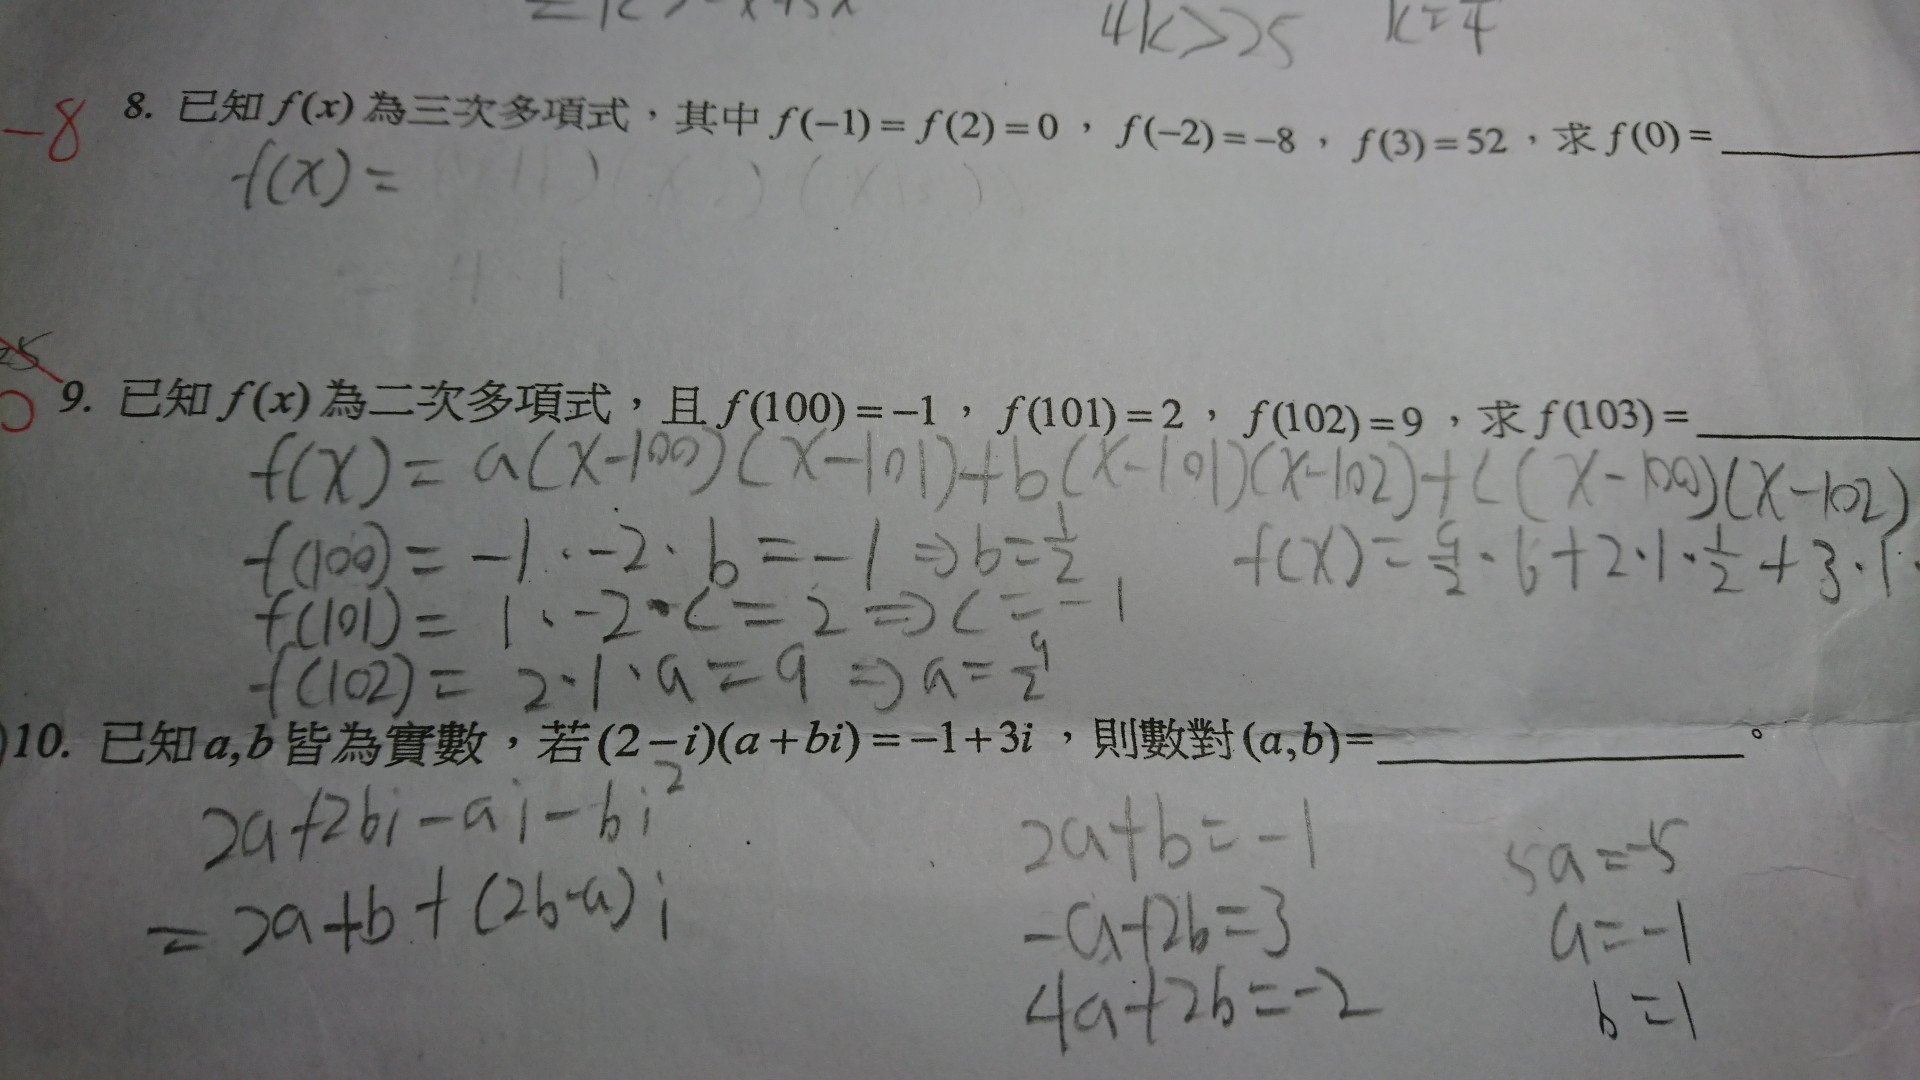 4k>25
-8
8. 已知 f(x) 為三次多項式,其中 f(-1)= f(2)=0,f(-2)=-8,f(3)=52,求 f(0)=
f(x)=
9. 已知 f(x) 為二次多項式,且 f(100)=-1,f(101)=2,f(102)=9,求 f(103)=
f(x)=a(x-100)(x-101)+b(x-101)(x-102)+c(x-100)(x-102)
f(100)=-1·-2·b=-1⇒b=1/2
f(x)=9/2·6+2·1·1/2+3·1·
f(101)=1·-2·c=2⇒c=-1
f(102)=2·1·a=9⇒a=9/2
10. 已知 a,b 皆為實數,若 (2-i)(a+bi)=-1+3i,則數對 (a,b)=。
2a+2bi-ai-bi²
2a+b=-1
5a=-5
=2a+b+(2b-a)i
-a+2b=3
a=-1
4a+2b=-2
b=1